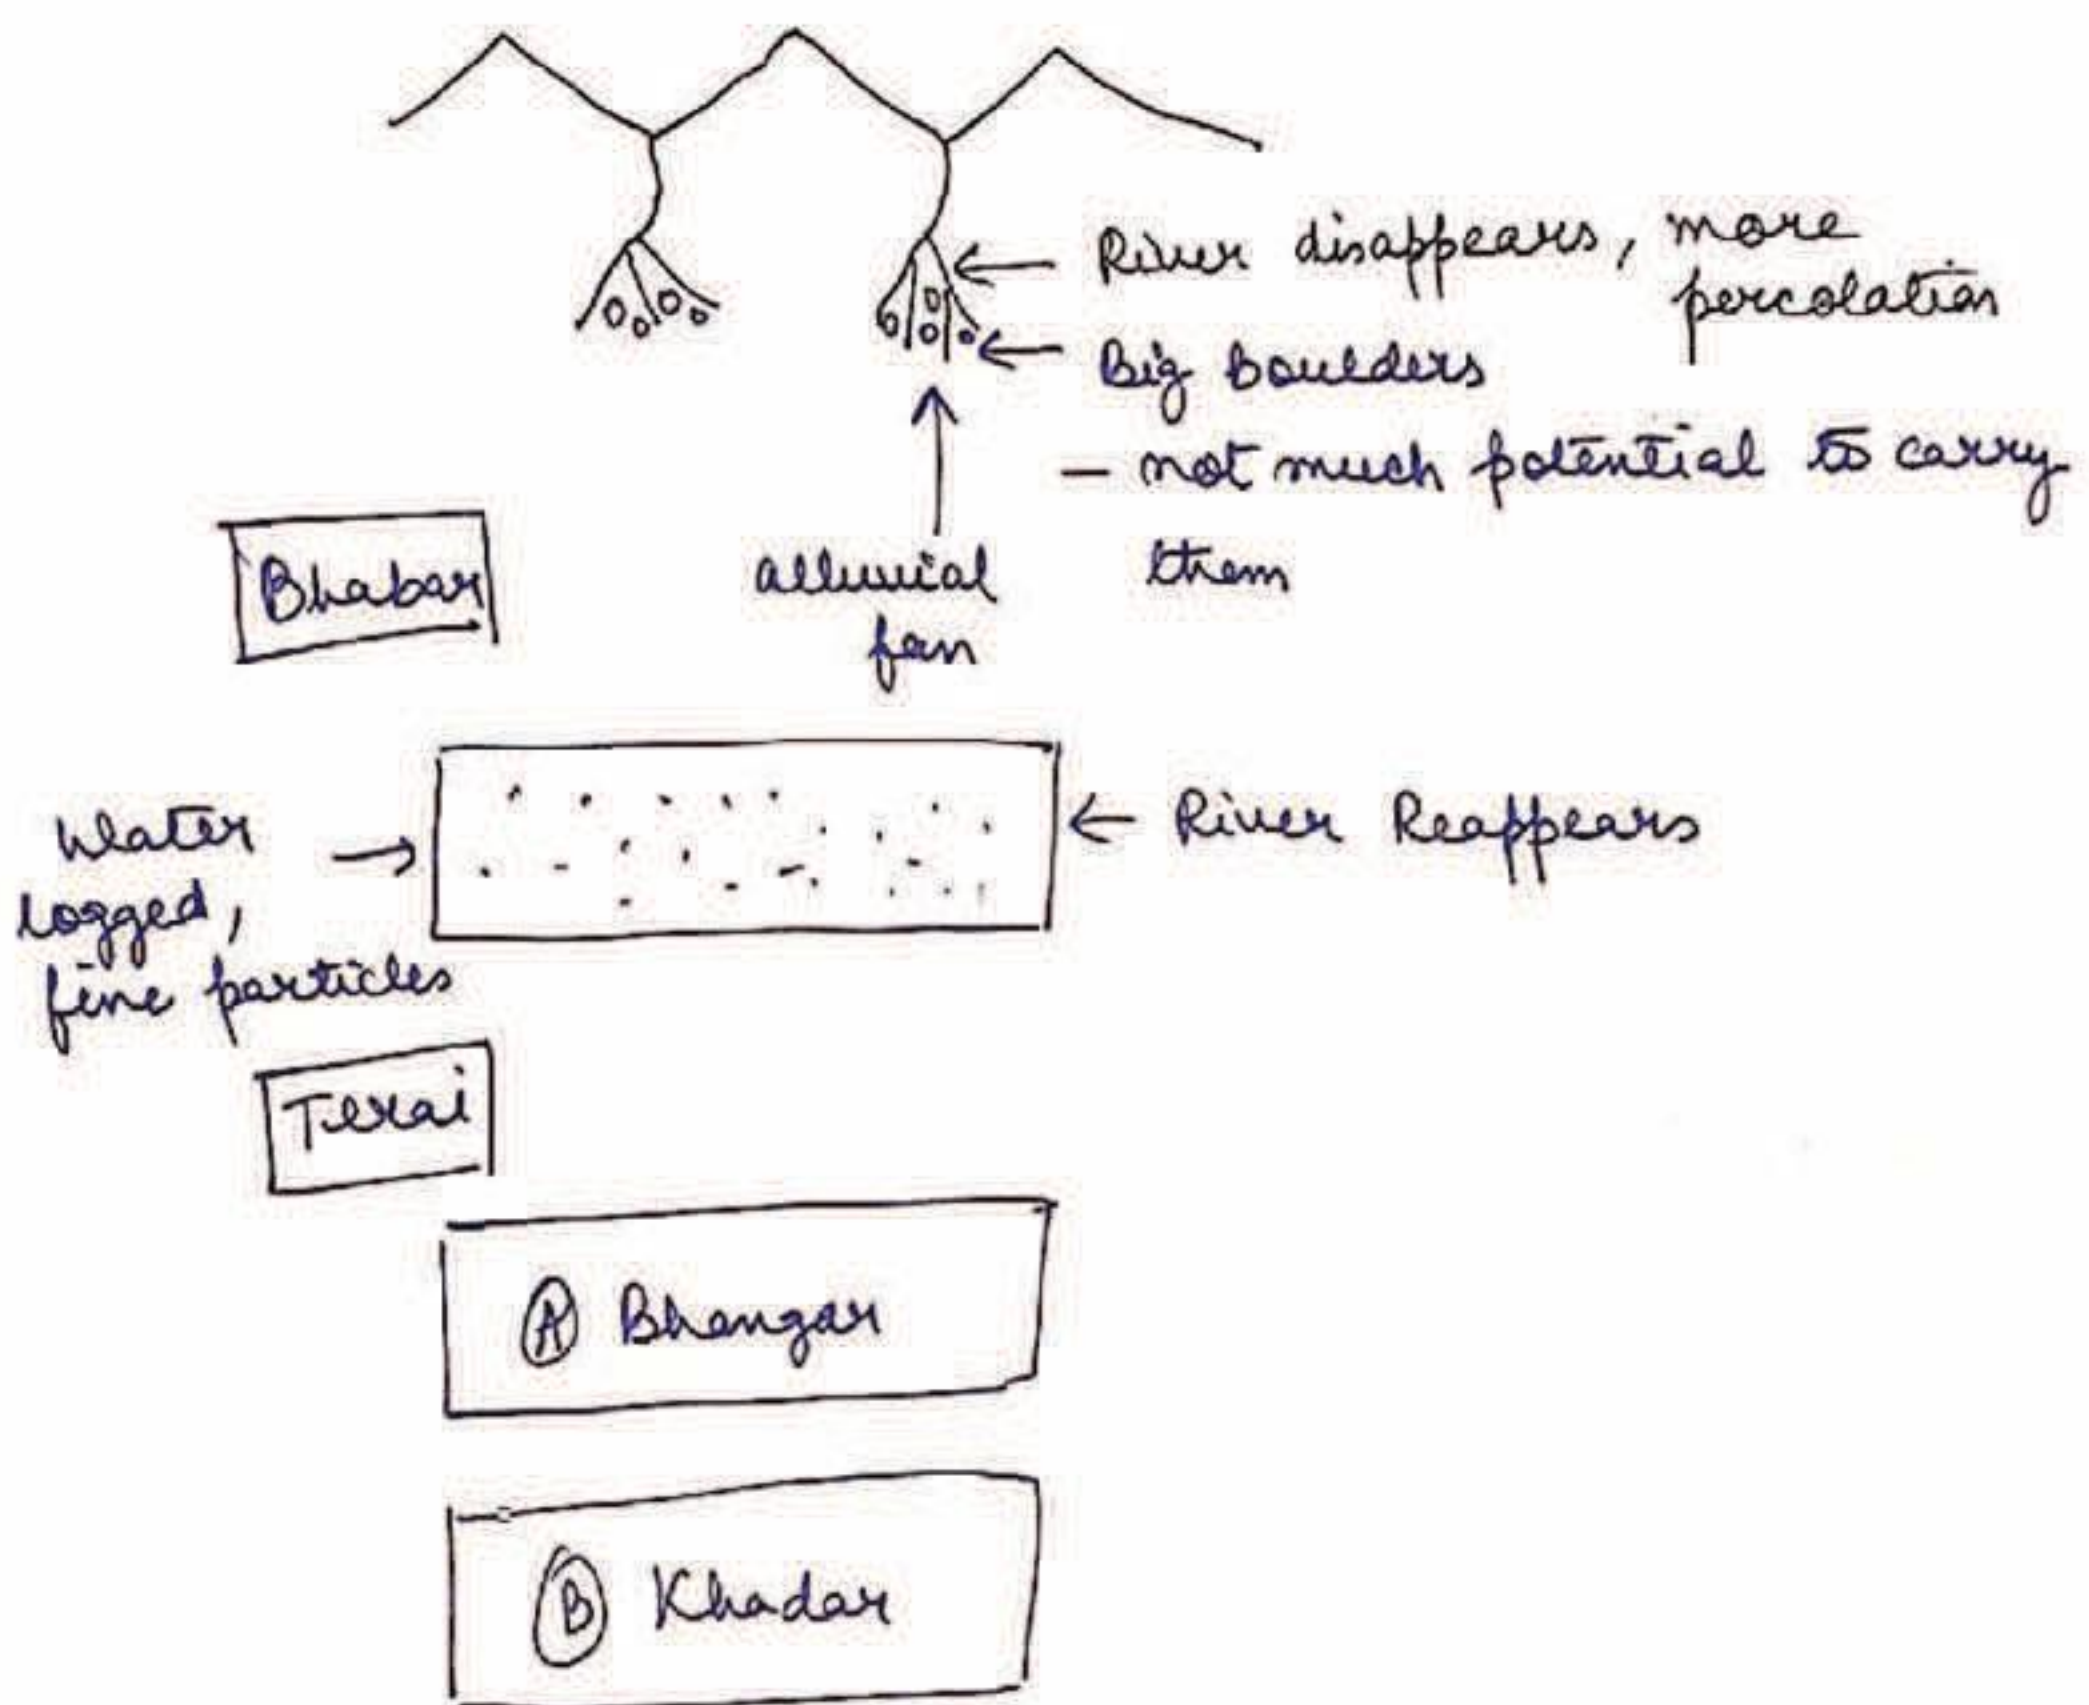 River disappears, more
percolation
Big boulders
- not much potential to carry
them
Bhabar
alluvial
fan
Water
logged,
fine particles
← River Reappears
Terai
Ⓐ Bhangar
Ⓑ Khadar